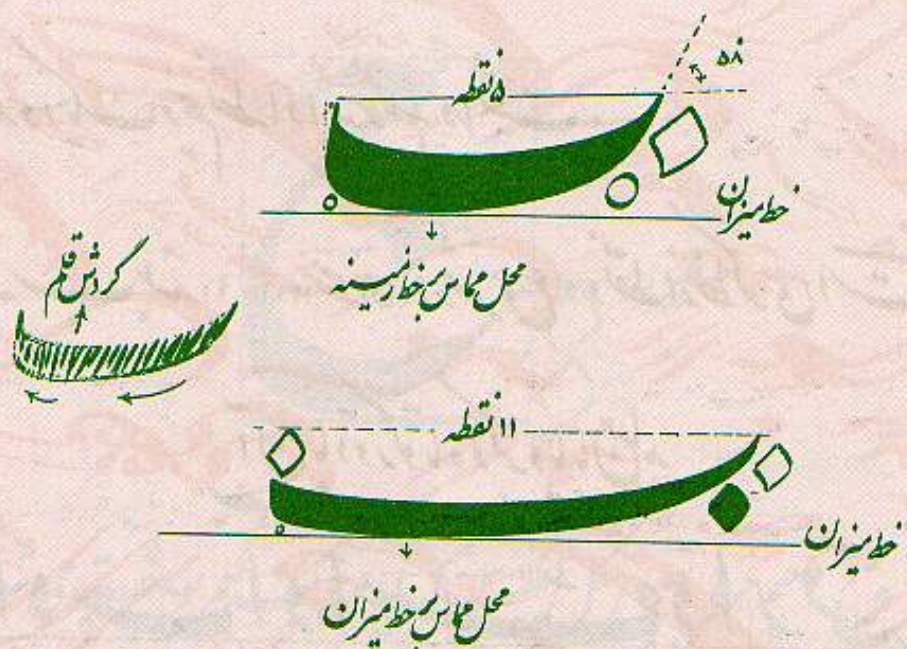 ۵۸
۵ نقطه
خط میزان
محل مماس بر خط زمینه
گردش قلم
۱۱ نقطه
خط میزان
محل مماس بر خط میزان